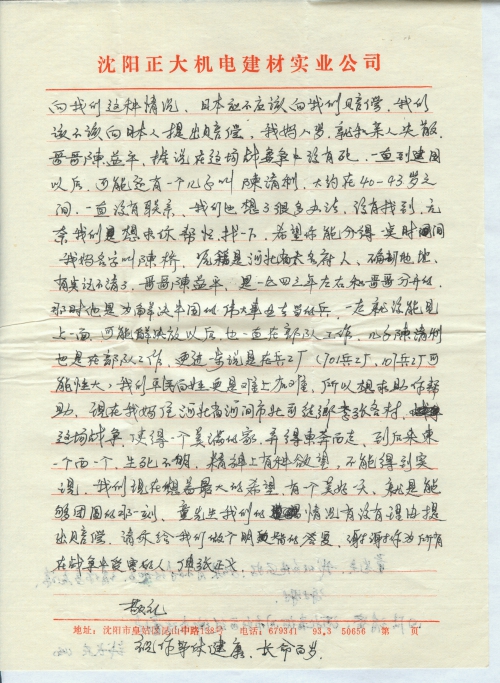 沈阳正大机电建材实业公司
向我们这种情况、日本应不应该向我们赔偿、我们
该不该向日本人提出赔偿、我妈八岁、就和亲人失散、
哥哥陈益平、据说在这场战争中没有死、一直到建国
以后、可能还有一个儿子叫陈清利、大约在40-43岁之
间、一直没有联系、我们也想了很多办法、没有找到、无
奈我们是想求你帮忙找一下、希望你能分得一点时间
我妈名字叫陈桥、原籍是河北省
有些记不清了、哥哥陈益平、是一九四三年左右和哥哥分开的、
那时他是为解决中国的伟大事业去当的兵、一走就没能见
上一面、可能解放以后也一直在部队工作、儿子陈清利
也是在部队工作、更进一步说是在兵工厂(701兵工厂、107兵工厂可
能性大)我们平民百姓更是难上加难、所以想求助你帮
助、现在我妈住河北省河间市北司徒乡李张各村、
这场战争、使得一个美满的家、弄得东奔西走、到后来东
一个西一个、生死不明、精神上有种欲望、不能得到实
现、我们现在想着最大的希望、有个美好一天、就是能
够团圆的那一刻、童先生我们的情况有没有理由提
出赔偿、请求给我们做个明确的答复、谢谢你为所有
在战争中受害的人、伸张正义、
敬礼
地址:沈阳市皇姑区昆山中路138号 电话:679341 93.3 50656 第 页
祝你身体健康、长命百岁、